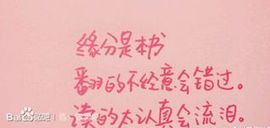 缘分是书
翻的不经意会错过。
读的太认真会流泪。
Baidu百科